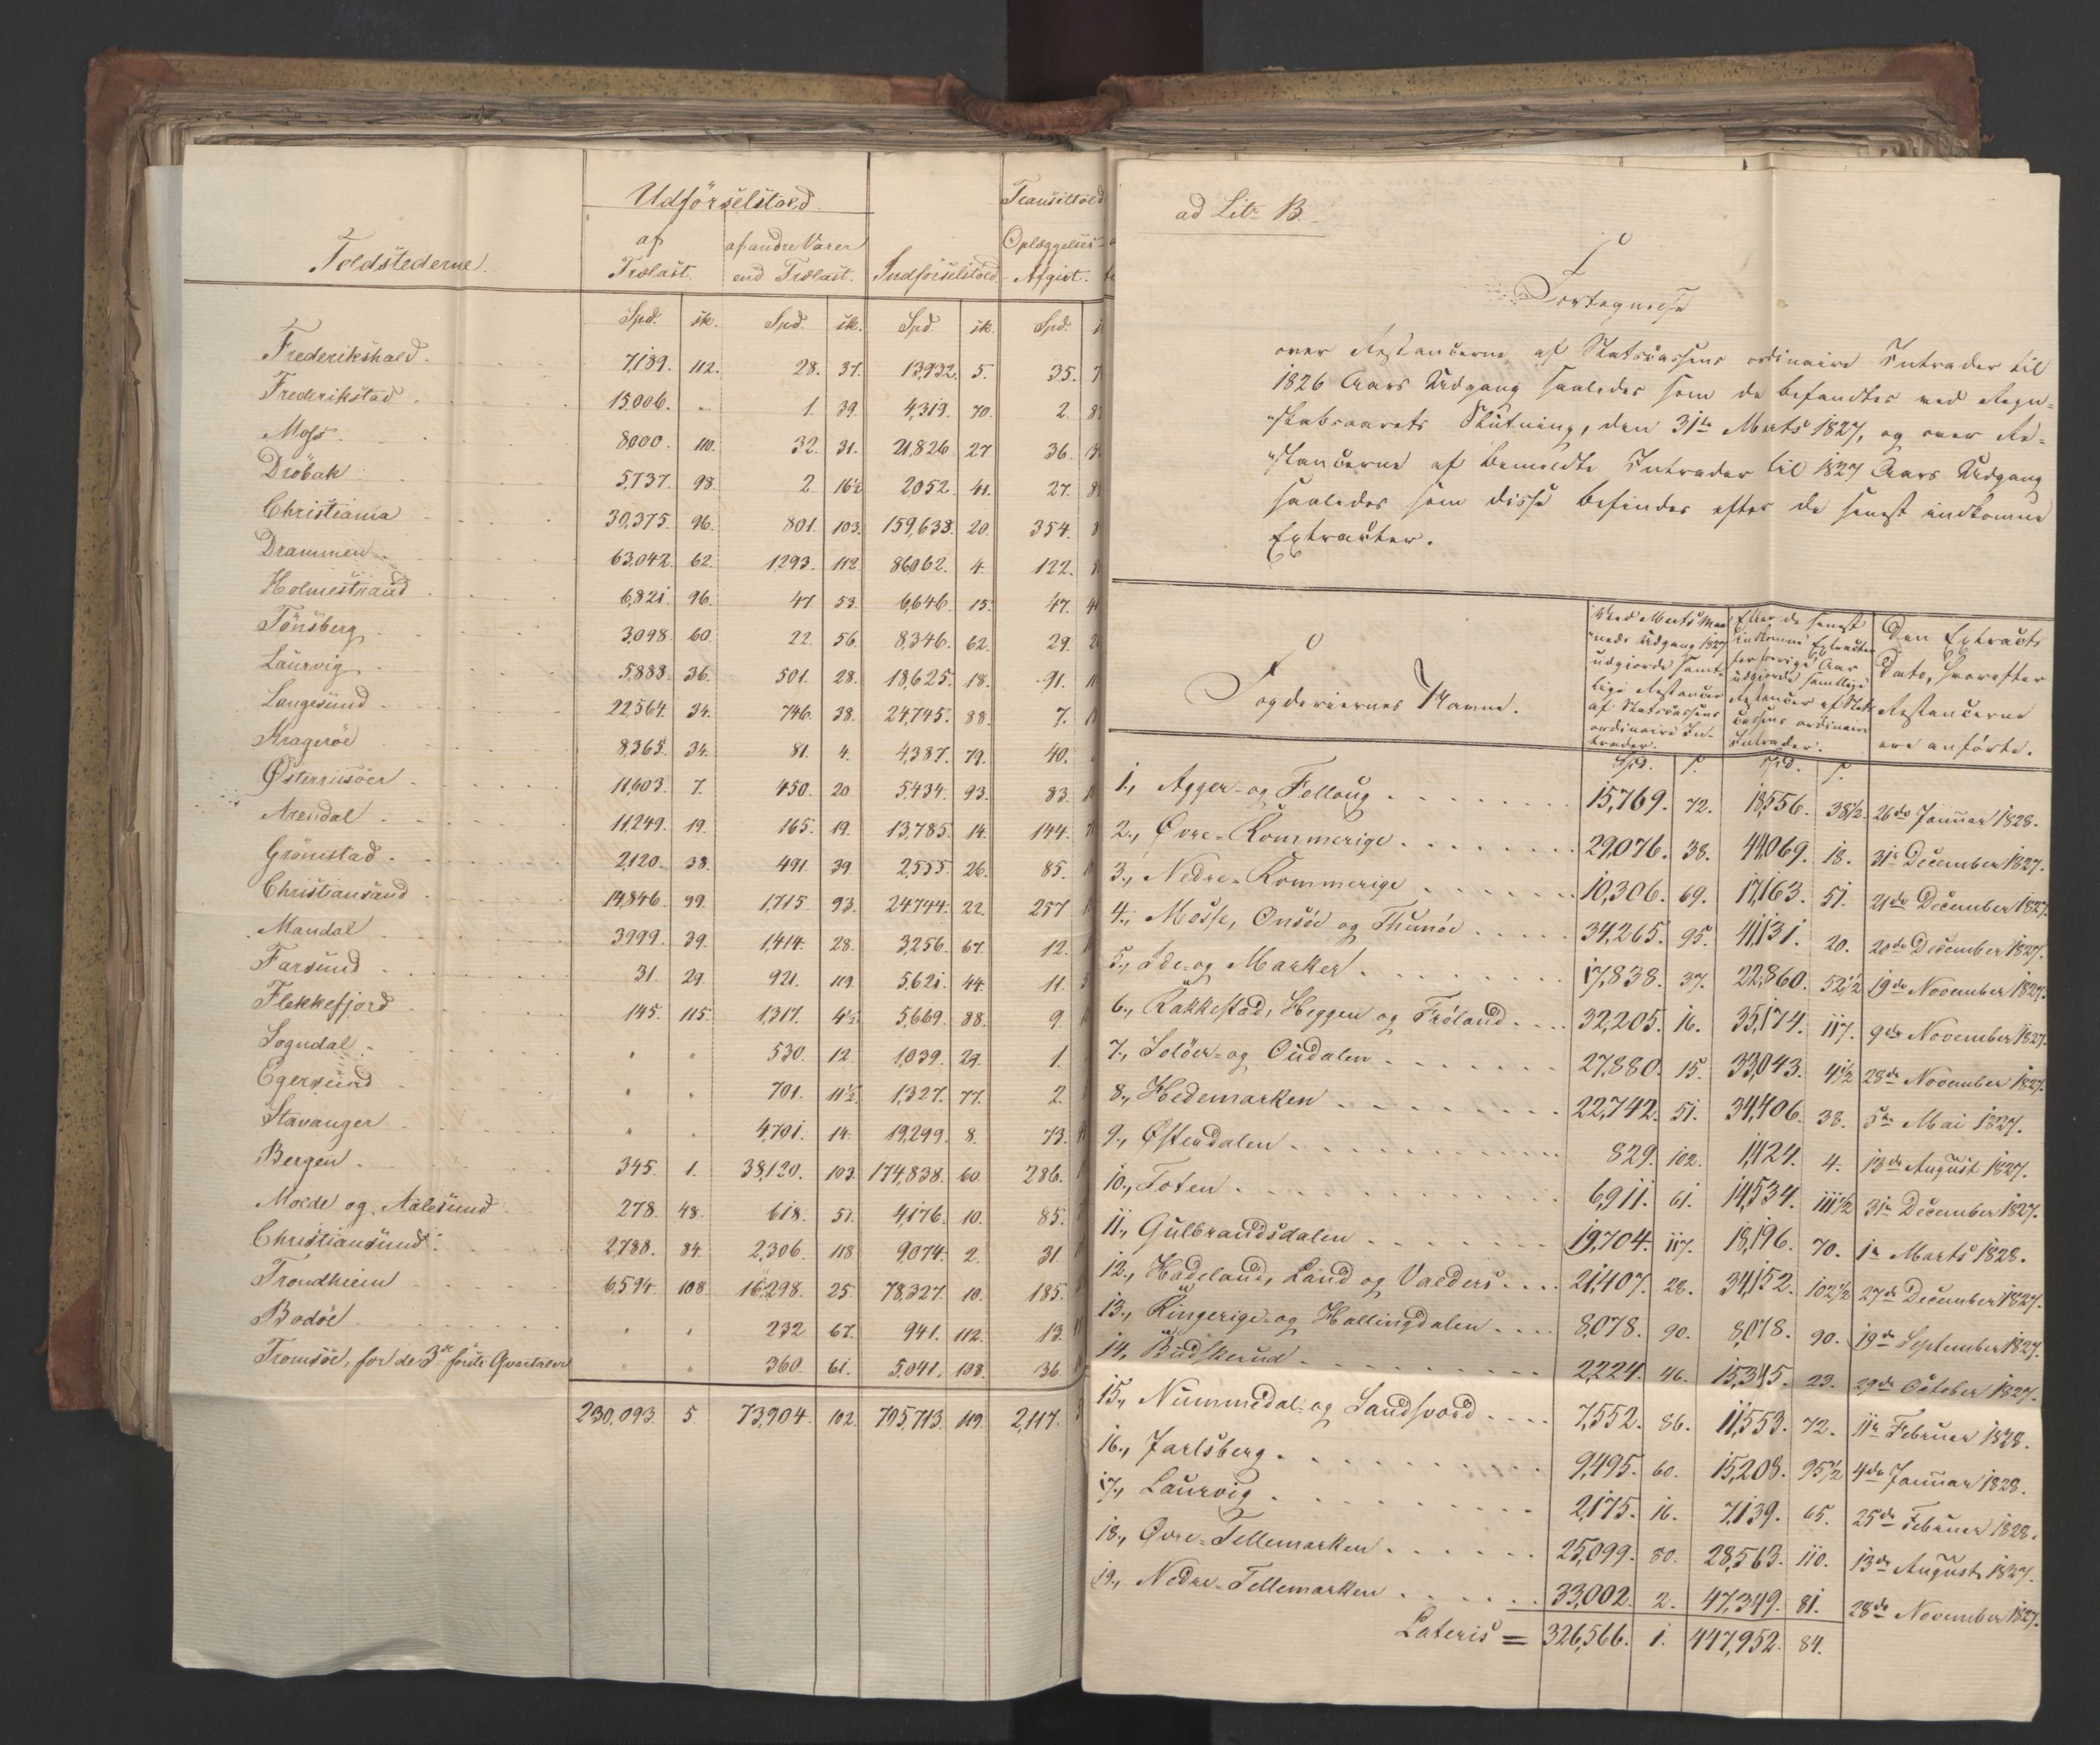 Toldstederne.
Udförselstold.
af Trælast.
af andre Varer end Trælast.
Indförselstold.
Transittold
Oplæggelses-
Afgivt.
Spd. sk. Spd. sk. Spd. sk. Spd.
Frederikshald. 7,189. 112. 28. 37. 13,932. 5. 35.
Frederikstad. 15,006. „ 1. 39. 4,319. 70. 2.
Moss. 8,000. 110. 32. 31. 21,826 27 36.
Dröbak 5,737. 98. 2. 16½ 2052. 41. 27.
Christiania 39,375. 96. 801. 103. 159,638. 20. 354.
Drammen. 63,042. 62. 1,293. 112. 86062. 4. 122.
Holmestrand 6,821. 96. 47 53. 6,646. 15. 47.
Tönsberg 3,098. 60. 22. 56. 8,346. 62. 29.
Laurvig 5,888. 36. 501. 28. 18,625. 18. 91.
Langesund 22,564. 34. 746. 38. 24,745. 88. 7.
Krageröe 8,365. 34. 81. 4. 4,387. 79. 40.
Østerriisöer 11,603. 7. 450. 20. 5,434. 93. 83.
Arendal 11,249. 19. 165. 19. 13,785. 14. 144.
Grömstad. 2,120. 38. 491. 39. 2,555. 26. 85.
Christiansand 14,846. 99. 1,715. 93. 24744. 22. 257
Mandal 3,999. 39. 1,414. 28. 3,256. 67. 12.
Farsund 31. 29. 921. 119. 5,621. 44. 11.
Flekkefjord 145. 115. 1,317. 4½ 5,669. 88. 9.
Sogndal. „ „ 530. 12. 1,039. 29. 1.
Egersund „ „ 701. 11½ 1,327. 77. 2.
Stavanger „ „ 4,701. 14. 19,299. 8. 73.
Bergen. 345. 1. 38,120. 103. 174,838. 60. 286.
Molde og Aalesund 278. 48. 618. 51. 4,176. 10. 85.
Christiansund. 2,788. 84. 2,306. 118 9,074. 2. 31
Trondhiem 6,594. 108. 16,298. 25. 78,327. 10. 185.
Bodöe. „ „ 232 67. 941. 112. 13.
Tromsöe, for de 3de förste Qvartaler „ „ 360. 61. 5,041. 108. 36
230,093. 5. 73,904. 102. 795,713. 119. 2,117.
ad Litr B.
Fortegnelse
over Restancerne af Statscassens ordinaire Intrader til
1826 Aars Udgang saaledes som de befandtes ved Regn-
skabsaarets Slutning, den 31te Marts 1827, og over Re-
stancerne af bemeldte Intrader til 1827 Aars Udgang
saaledes som disse befindes efter de senest indkomne
Extracter.
Fogderiernes Navne.
Ved Marts Maa-
neds Udgang 1827
udgjorde samt-
lige Restancer
af Statscassens
ordinaire In-
trader.
Efter de senest
indkomne Extracter
for forrige Aar
udgjorde samtlige
Restancer af Stats-
cassens ordinaire
Intrader.
Den Extracts
Dato, hvorefter
Restancerne
ere anförte.
Spd. s. Spd. s.
1., Agger- og Folloug 15,769. 72. 18,556. 38½. 26de Januar 1828.
2., Øvre-Rommerige 29,076. 38. 44,069. 18. 31te December 1827.
3., Nedre-Rommerige 10,306. 69. 17,163. 51. 21de December 1827.
4., Mosse, Onsöe og Thunöe 34,265. 95. 41,131. 20. 20de December 1827.
5., Ide- og Marker 17,838. 37. 22,860. 52½ 19de November 1827.
6., Rakkestad, Heggen og Fröland 32,205. 16. 35,174. 117. 9de November 1827.
7., Solöer- og Oudalen 27,880. 15. 33,043. 4½ 28de November 1827.
8., Hedemarken 22,742. 51. 34,406. 38. 5te Mai 1827.
9., Østerdalen 829. 102. 1,424. 4. 13de August 1827.
10., Toten 6,911. 61. 14,534. 111½ 31te December 1827.
11., Gulbrandsdalen 19,704. 117. 18,196. 70. 1te Marts 1828.
12., Hadeland, Land og Valders 21,407. 28. 34,152. 102½ 27de December 1827.
13., Ringerige- og Hallingdalen 8,078. 90. 8,078. 90. 19de September 1827.
14., Budskerud 2,224. 46. 15,345. 23. 29de October 1827.
15., Nummedal- og Sandsvord 7,552. 86. 11,553. 72. 11te Februar 1828.
16., Jarlsberg 9,495. 60. 15,208. 95½ 4de Januar 1828.
17., Laurvig 2,175. 16. 7,139. 65. 25de Februar 1828.
18., Øvre-Tellemarken 25,099. 80. 28,563. 110. 13de August 1827.
19., Nedre-Tellemarken 33,002. 2. 47,349. 81. 28de November 1827.
Lateris = 326,566. 1. 447,952. 84.